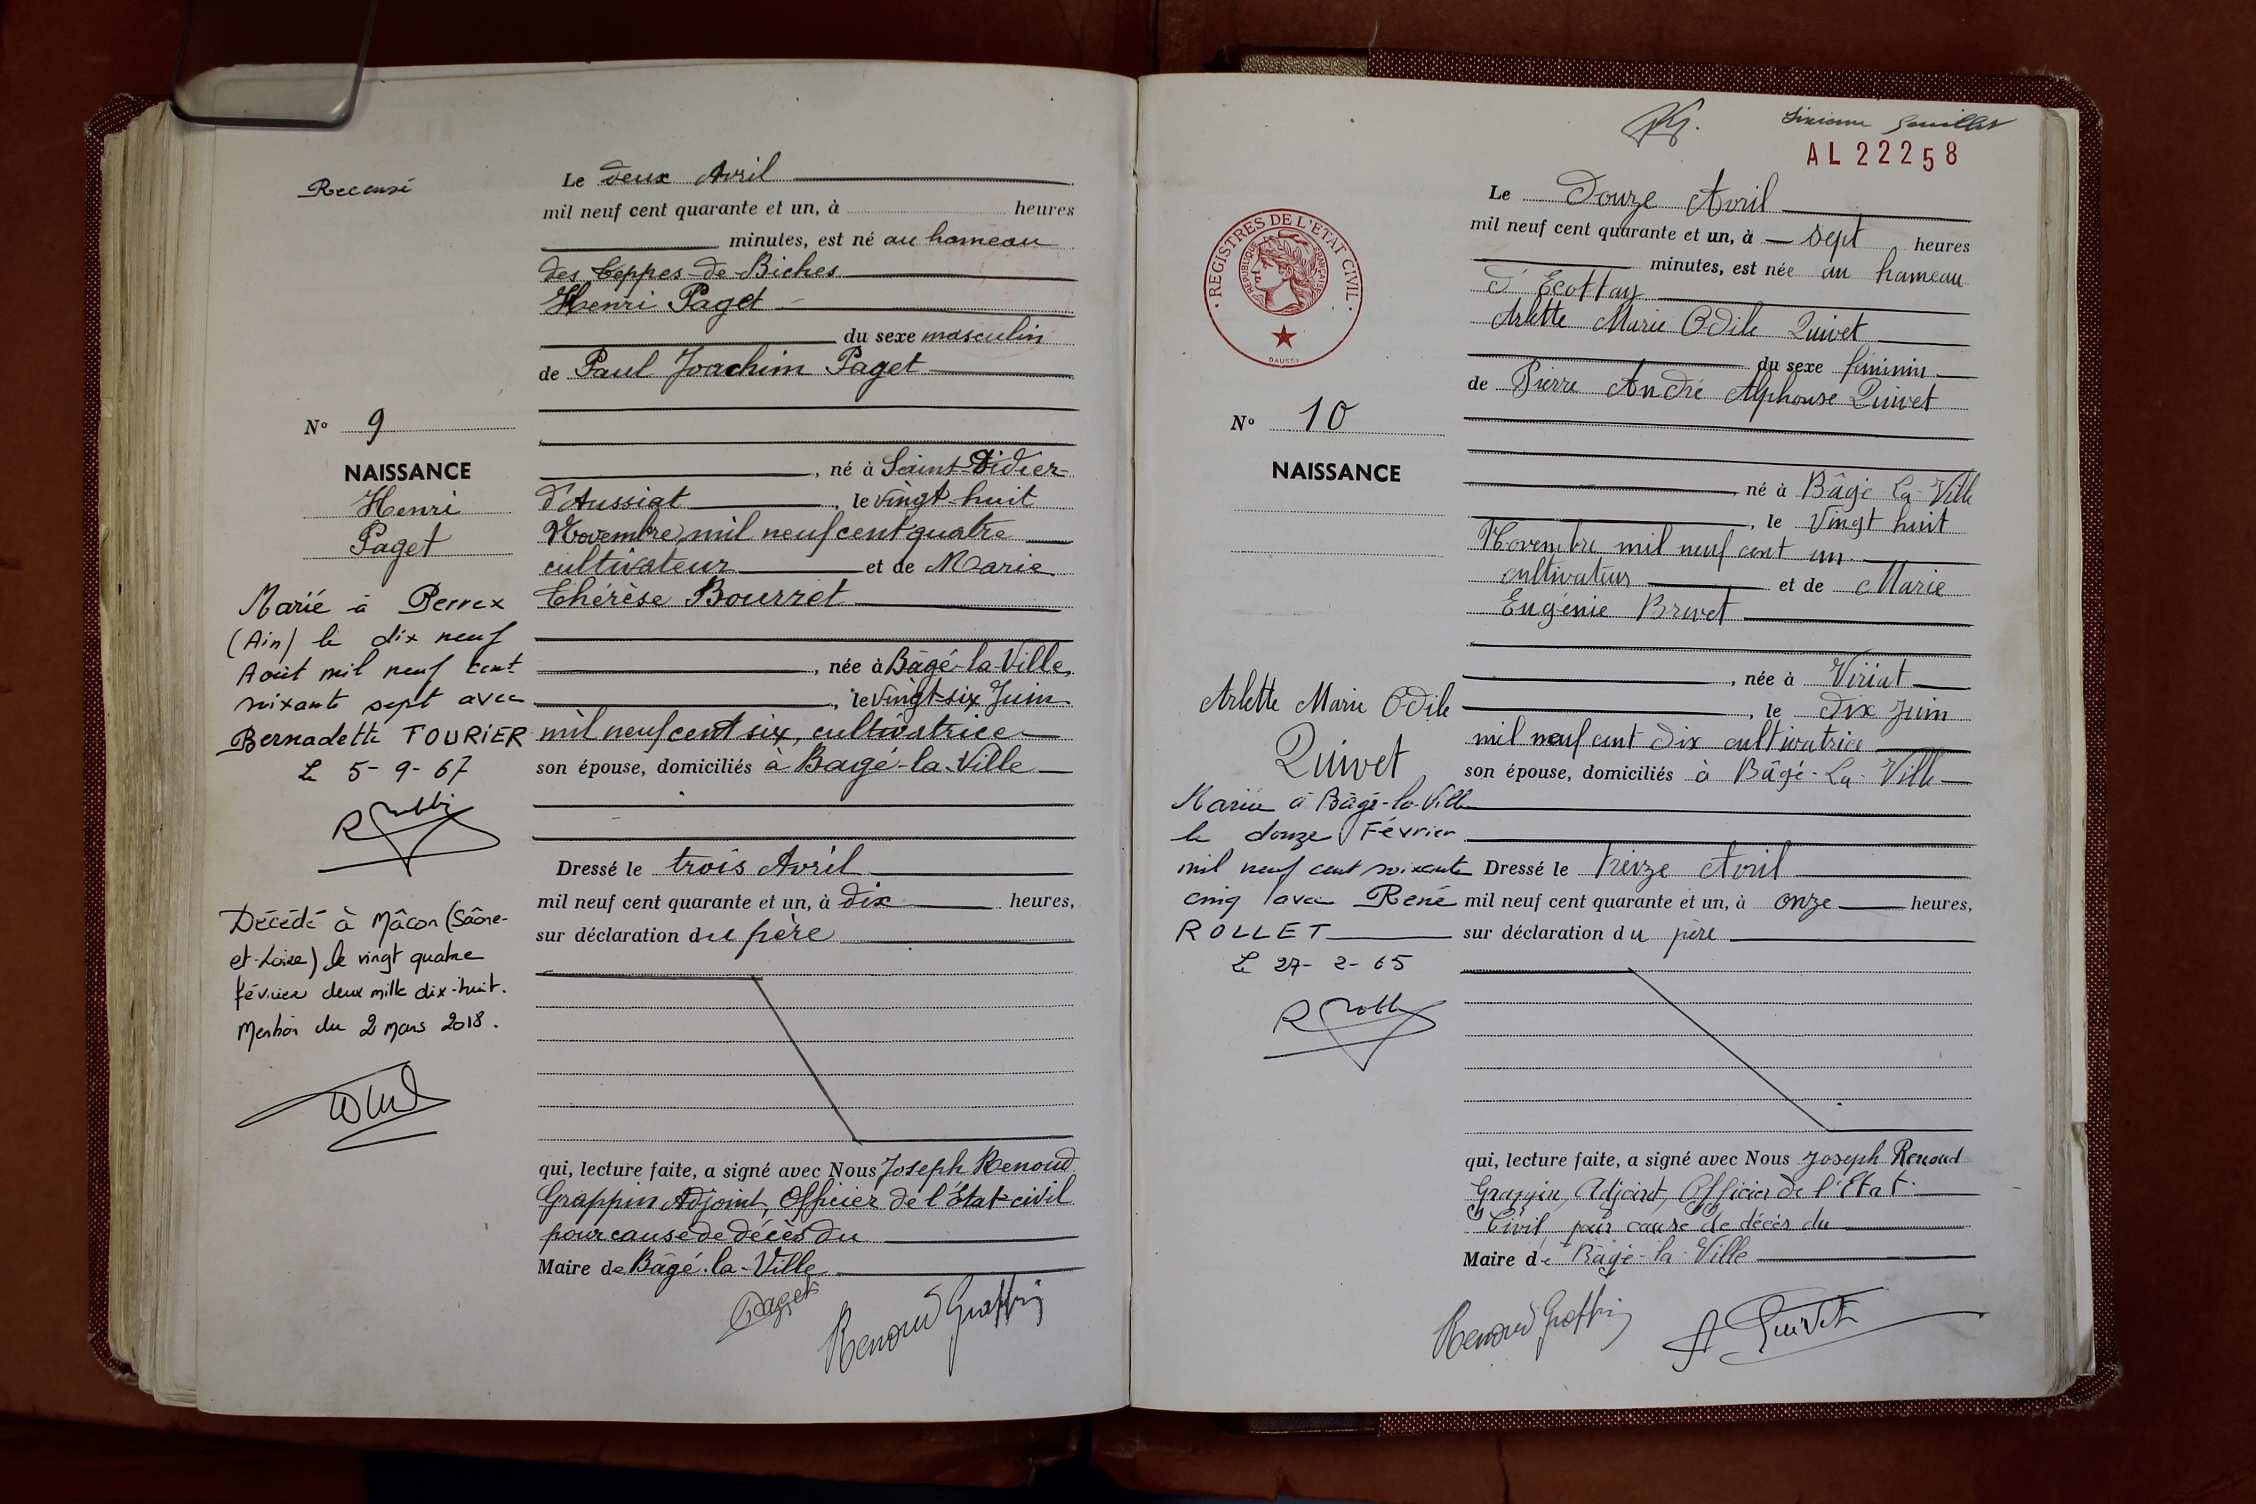 Recensé
Le deux Avril
mil neuf cent quarante et un, à heures
minutes, est né au hameau
des Teppes de Biches
Henri Paget
du sexe masculin
de Paul Joachim Paget
N° 9
NAISSANCE
Henri
Paget
, né à Saint-Didier-
d'Aussiat , le vingt-huit
Novembre mil neuf cent quatre
cultivateur et de Marie
Thérèse Bourret
, née à Bâgé-la-Ville
, le vingt-six Juin
mil neuf cent six, cultivatrice
son épouse, domiciliés à Bâgé-la-Ville
Marié à Perrex
(Ain) le dix neuf
Août mil neuf cent
soixante sept avec
Bernadette TOURIER
Le 5-9-67
Décédé à Mâcon (Saône-
et-Loire) le vingt quatre
février deux mille dix-huit.
Mention du 2 mars 2018.
Dressé le trois Avril
mil neuf cent quarante et un, à dix heures,
sur déclaration du père
qui, lecture faite, a signé avec Nous Joseph Renoud
Grappin Adjoint, Officier de l'État-civil
pour cause de décès du
Maire de Bâgé-la-Ville
Paget
Renoud Grappin
Sixième feuillet
AL 22258
Le Douze Avril
mil neuf cent quarante et un, à sept heures
minutes, est née au hameau
d'Ecottay
Arlette Marie Odile Quivet
du sexe féminin
de Pierre André Alphonse Quivet
REGISTRES DE L'ETAT CIVIL
REPUBLIQUE FRANÇAISE
DAUSSY
N° 10
NAISSANCE
, né à Bâgé la Ville
, le Vingt huit
Novembre mil neuf cent un
cultivateur et de Marie
Eugénie Brevet
, née à Viriat
, le Dix Juin
mil neuf cent dix cultivatrice
son épouse, domiciliés à Bâgé-La-Ville
Arlette Marie Odile
Quivet
Mariée à Bâgé-la-Ville
le douze Février
mil neuf cent soixante
cinq avec René
ROLLET
Le 27-2-65
Dressé le treize Avril
mil neuf cent quarante et un, à onze heures,
sur déclaration du père
qui, lecture faite, a signé avec Nous Joseph Renoud
Grappin, Adjoint, Officier de l'Etat-
Civil, pour cause de décès du
Maire de Bâgé-la-Ville
Renoud Grappin
A Quivet